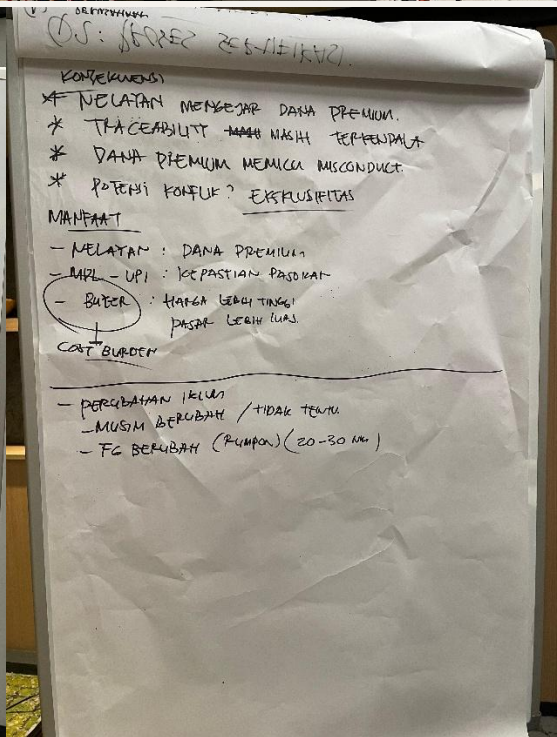 KONSEKUENSI
* NELAYAN MENGEJAR DANA PREMIUM.
* TRACEABILITY MASIH TERKENDALA
* DANA PREMIUM MEMICU MISCONDUCT.
* POTENSI KONFLIK? EKSKLUSIFITAS
MANFAAT
- NELAYAN : DANA PREMIUM
- MPL - UPI : KEPASTIAN PASOKAN
- BUYER : HARGA LEBIH TINGGI
PASAR LEBIH LUAS.
COST BURDEN
- PERUBAHAN IKLIM
- MUSIM BERUBAH / TIDAK TENTU.
- FG BERUBAH (RUMPON) (20-30 NM)